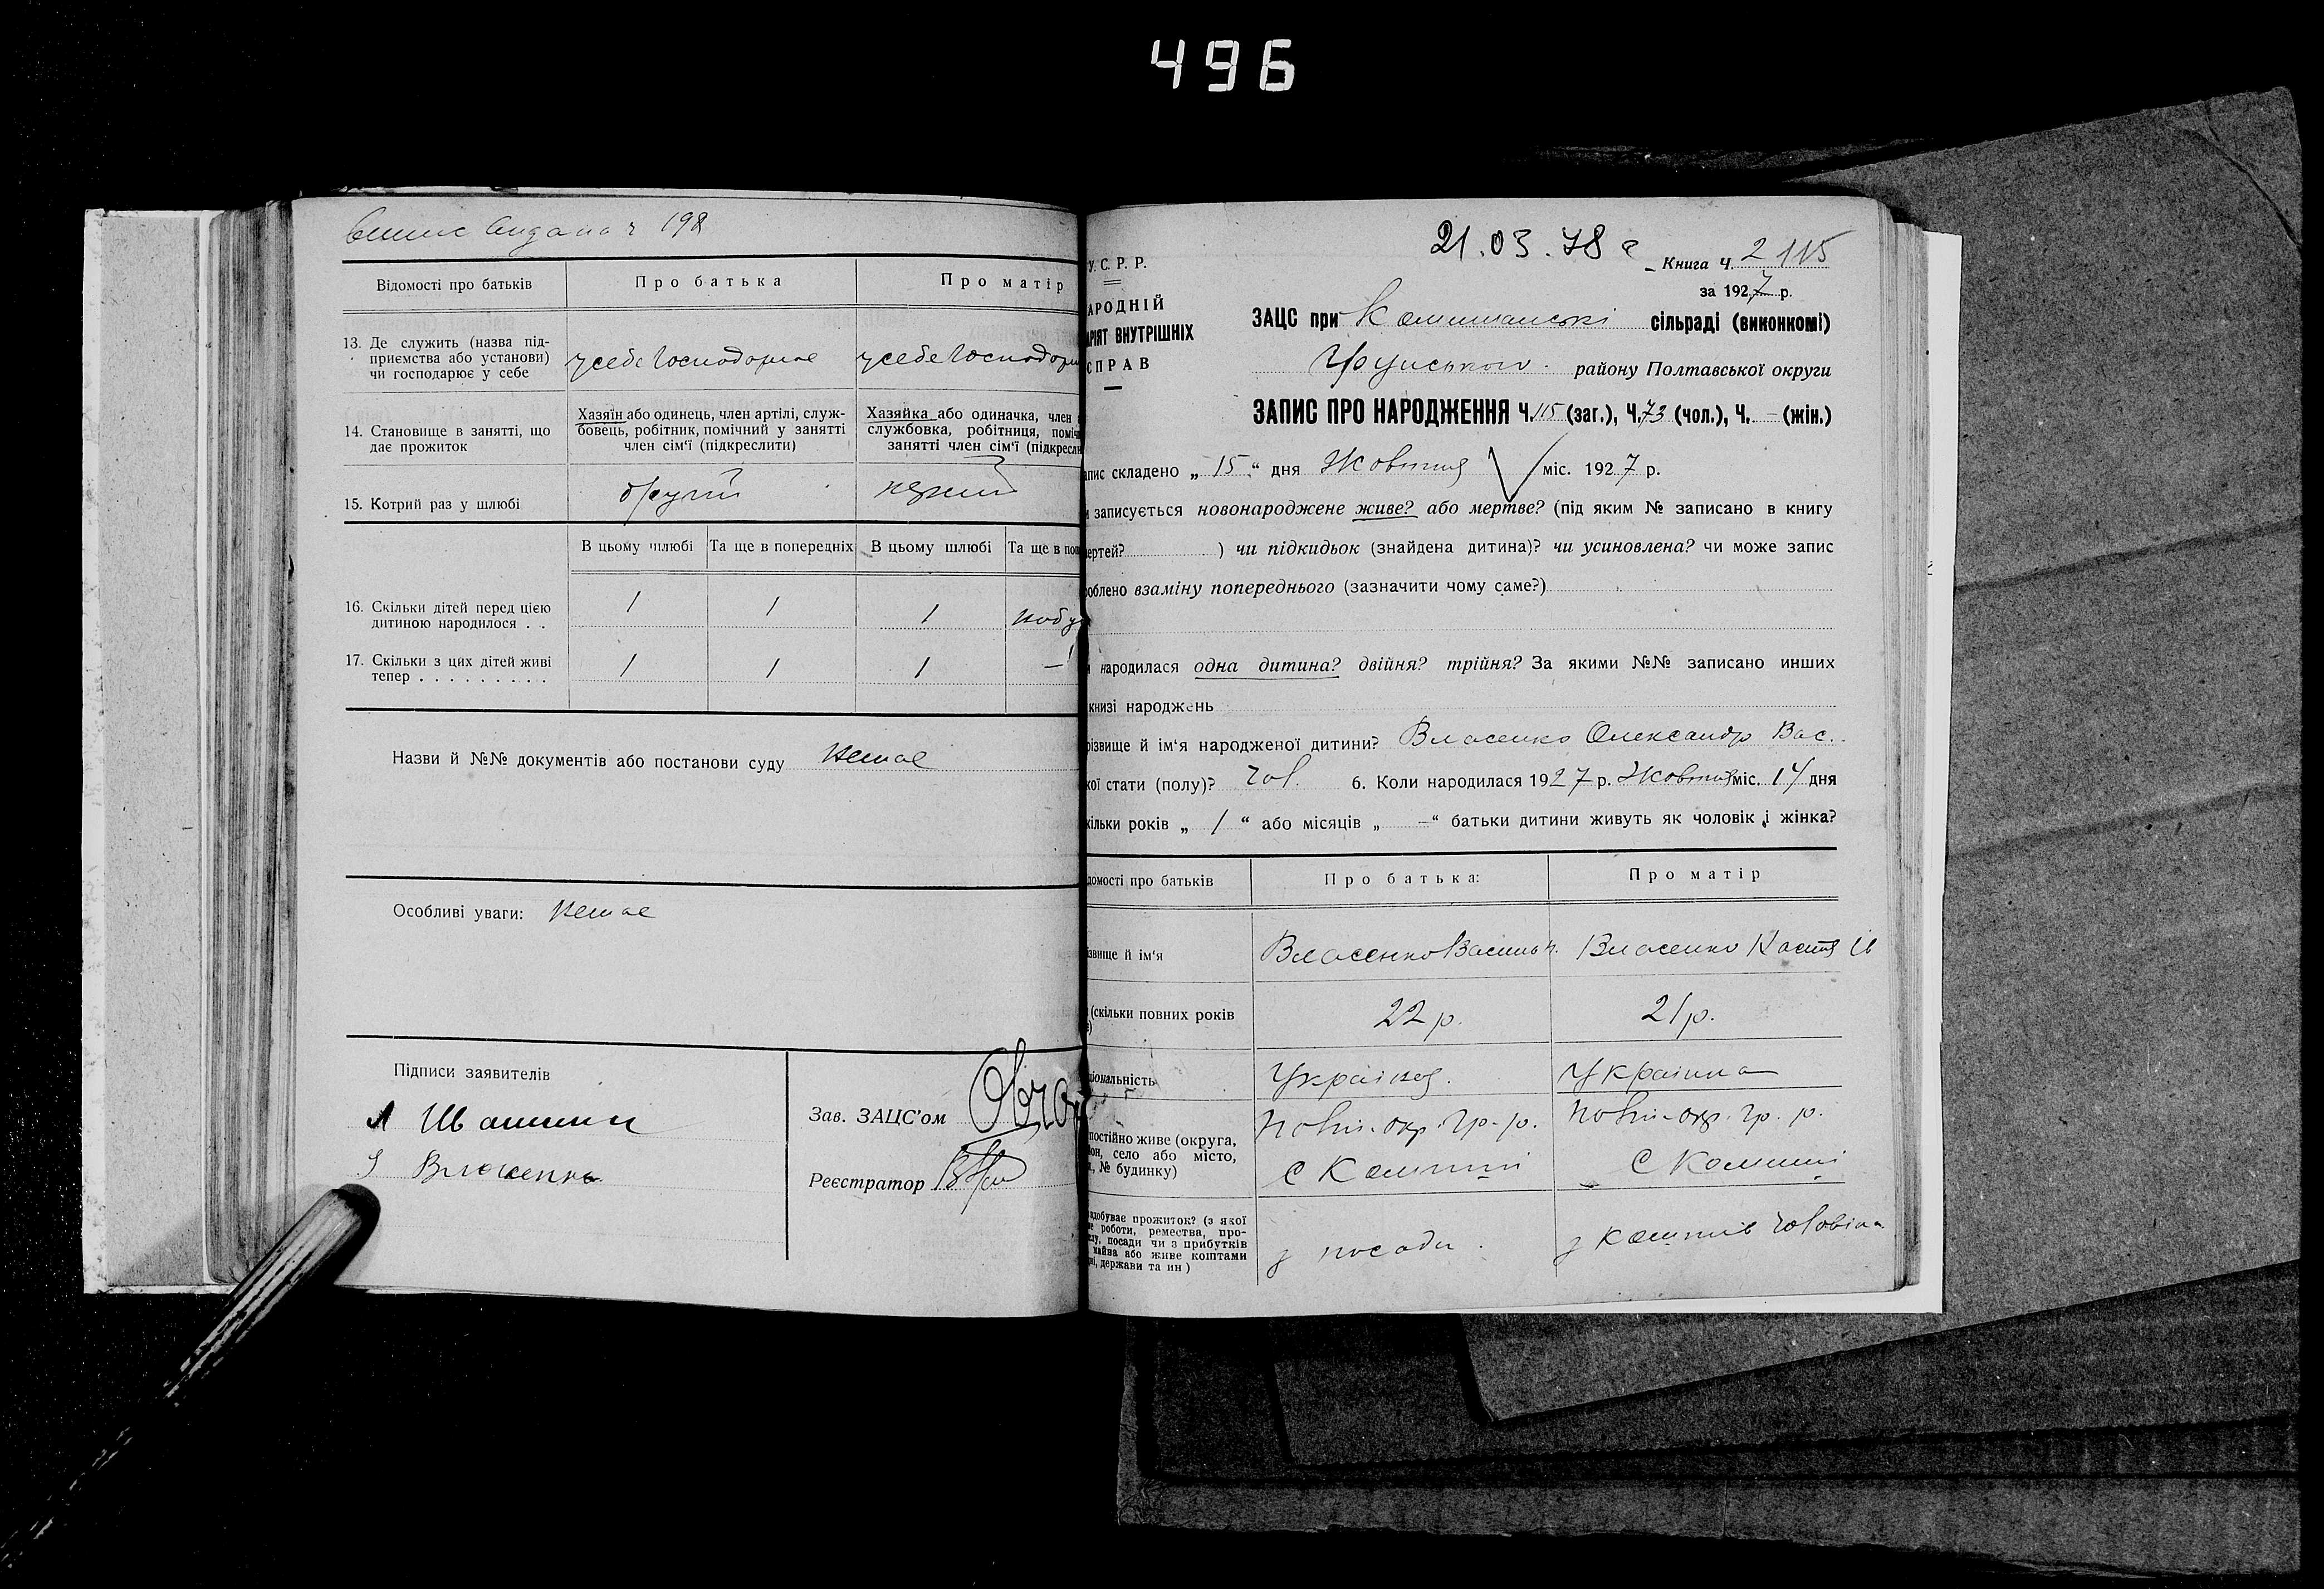 496
Випис видано ч 198
Відомості про батьків
Про батька
Про матір
13. Де служить (назва під-
приємства або установи)
чи господарює у себе
у себе Господарює
у себе Господарю
14. Становище в занятті, що
дає прожиток
Хазяїн або одинець, член артілі, служ-
бовець, робітник, помічний у занятті
член сім'ї (підкреслити)
Хазяйка або одиначка, член
службовка, робітниця, поміч
занятті член сім'ї (підкресли
15. Котрий раз у шлюбі
другий
перший
В цьому шлюбі
Та ще в попередніх
В цьому шлюбі
Та ще в поп
16. Скільки дітей перед цією
дитиною народилося . .
1
1
1
17. Скільки з цих дітей живі
тепер . . . . . . . . .
1
1
1
—
Назви й №№ документів або постанови суду Немає
Особливі уваги: Немає
Підписи заявителів
Власенко
Зав. ЗАЦС'ом
Реєстратор
21.03.78
У. С. Р. Р.
АРОДНІЙ
АРІЯТ ВНУТРІШНІХ
СПРАВ
Книга ч. 2 115
за 1927 р.
ЗАЦС при Комишанські сільраді (виконкомі)
Грунського району Полтавської округи
ЗАПИС ПРО НАРОДЖЕННЯ Ч. 115 (заг.), Ч. 73 (чол.), Ч. — (жін.)
апис складено „ 15 “ дня Жовтня міс. 1927 р.
и записується новонароджене живе? або мертве? (під яким № записано в книгу
ертей? ) чи підкидьок (знайдена дитина)? чи усиновлена? чи може запис
облено взаміну попереднього (зазначити чому саме?)
и народилася одна дитина? двійня? трійня? За якими №№ записано инших
книзі народжень
різвище й ім'я народженої дитини? Власенко Олександр Вас.
кої стати (полу)? чол. 6. Коли народилася 1927 р. Жовтня міс. 14 дня
кільки років „ 1 “ або місяців „ — “ батьки дитини живуть як чоловік і жінка?
домості про батьків
Про батька:
Про матір
звище й ім'я
Власенко Василь
Власенко Настя
(скільки повних років
22 р.
21 р.
ціональність
Українец.
Українка
постійно живе (округа,
йон, село або місто,
, № будинку)
Полт. окр. Гр. р.
С Комиші
Полт. окр. Гр. р.
С Комиші
здобуває прожиток? (з якої
е роботи, ремества, про-
лу, посади чи з прибутків
майна або живе коштами
ні, держави та ин)
з посади
з коштів чоловіка